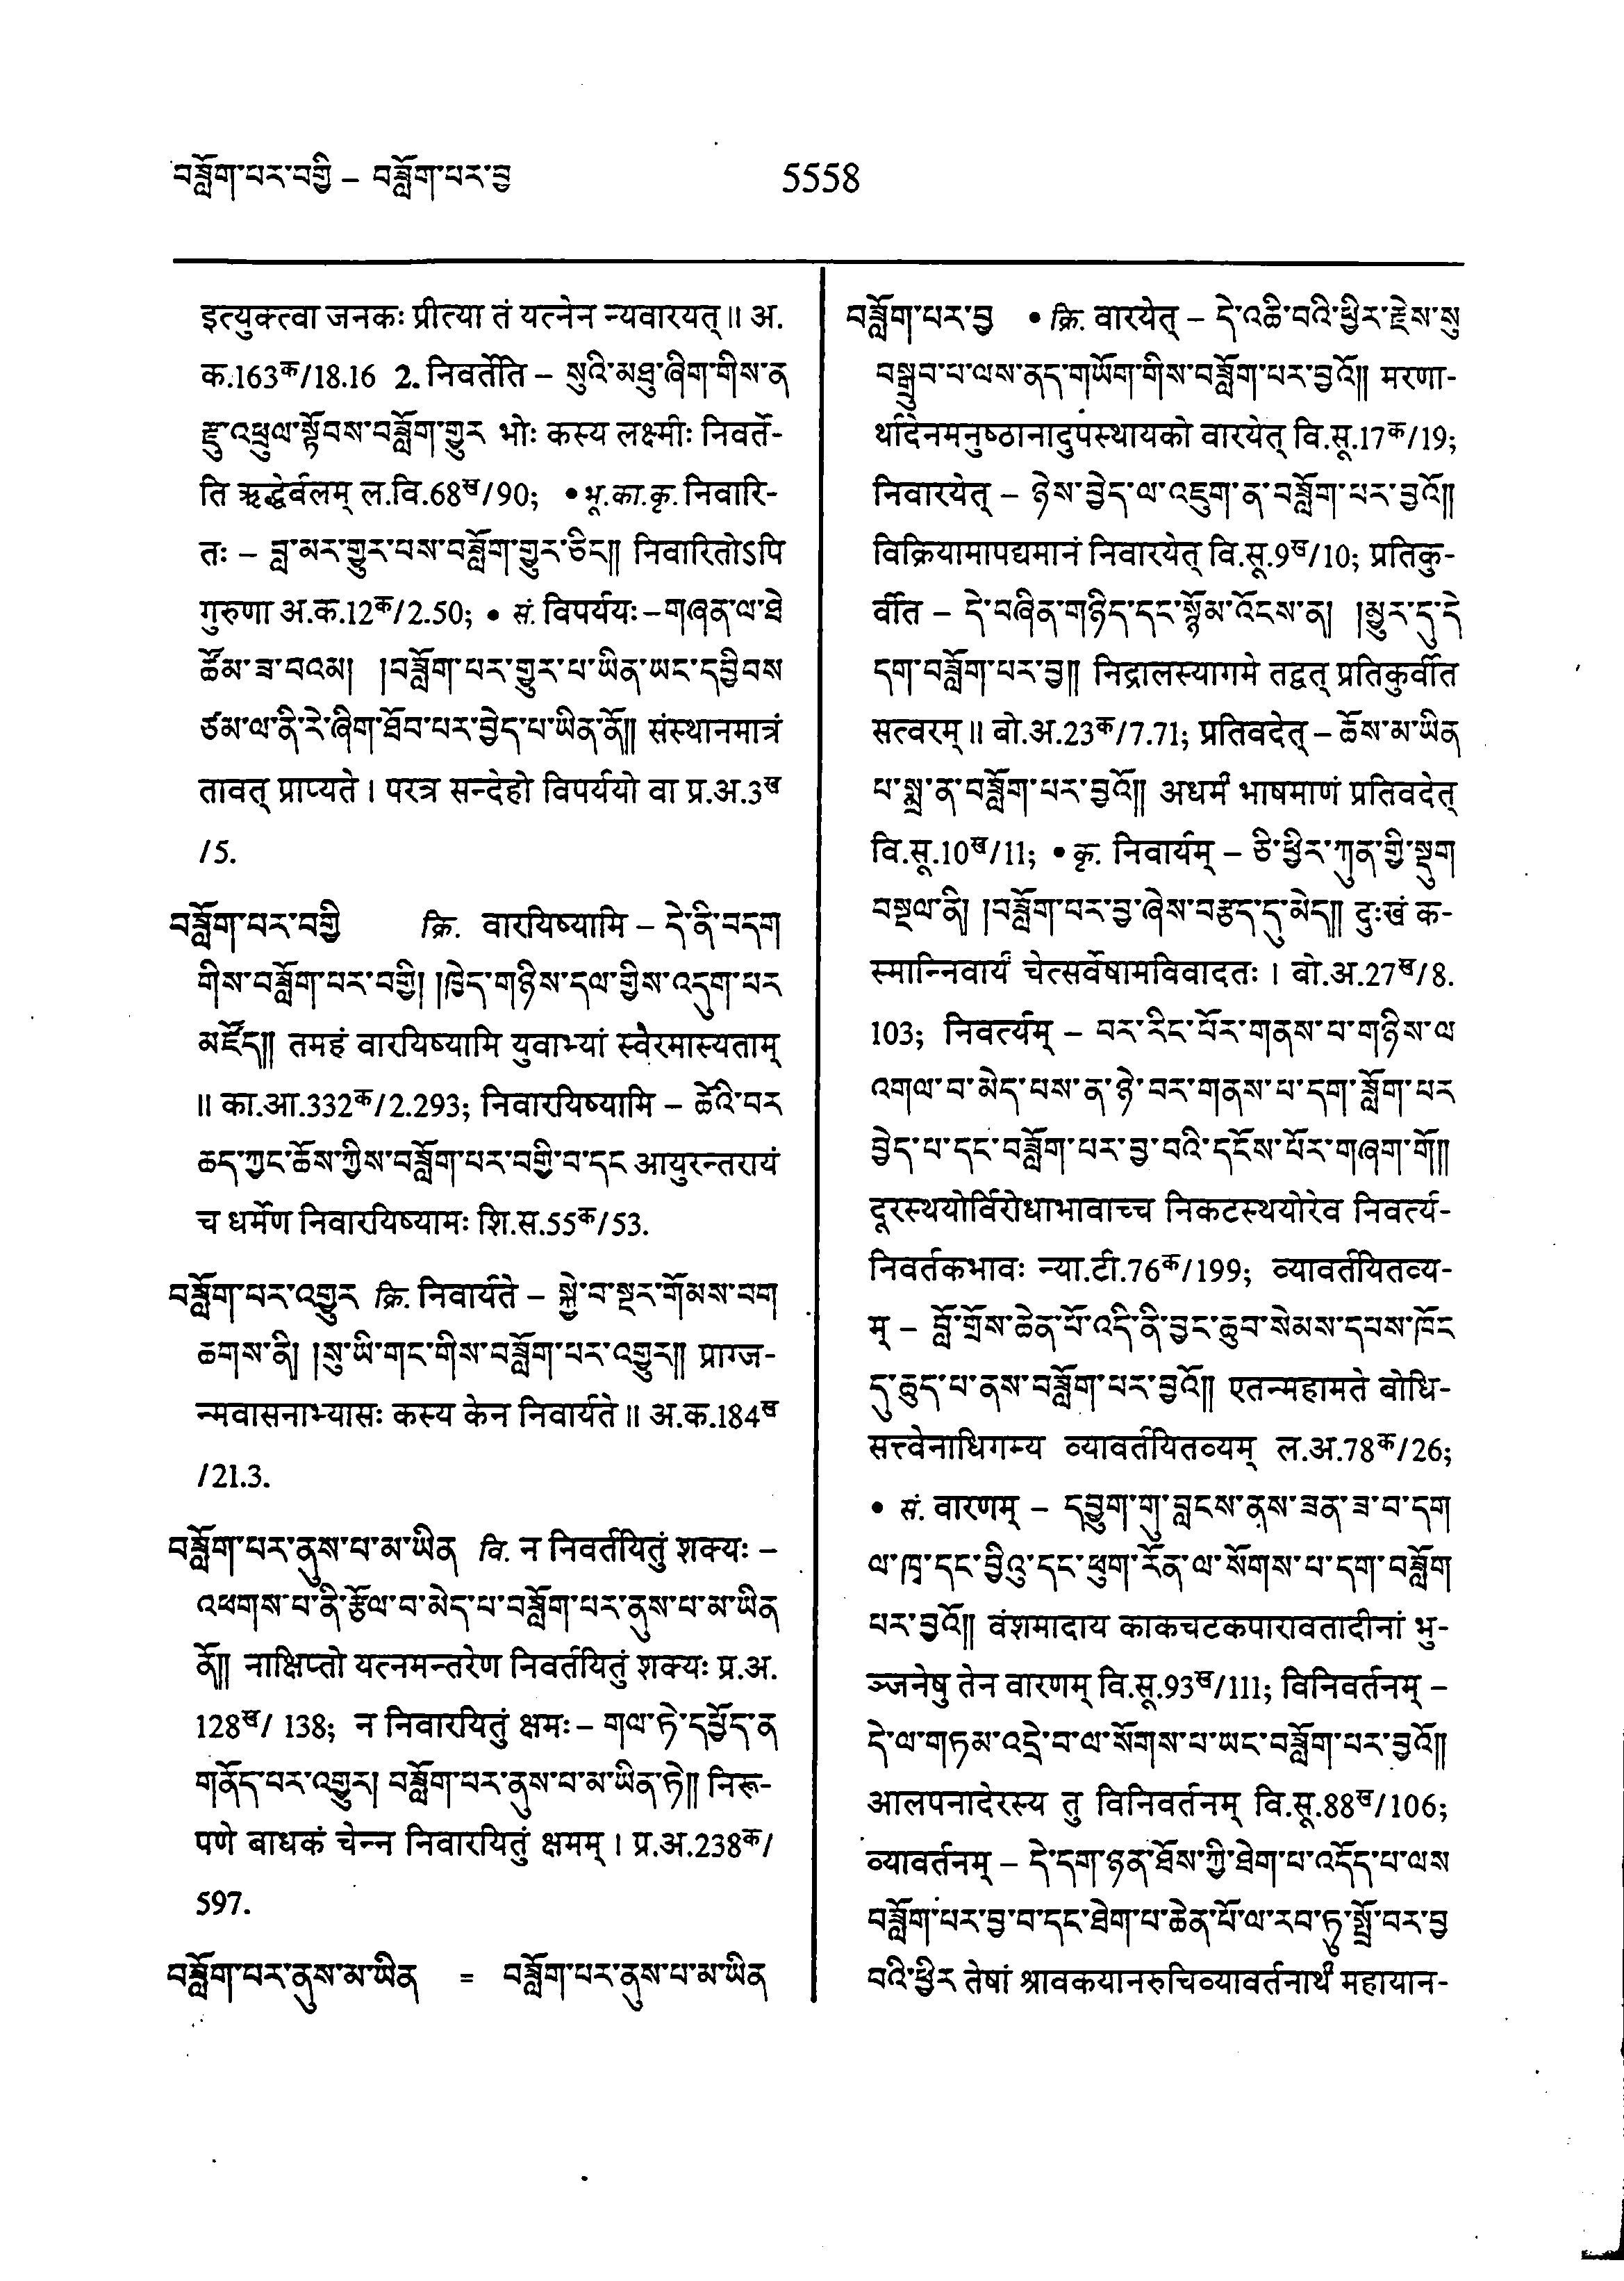 བཟློག་པར་བགྱི – བཟློག་པར་བྱ
5558
इत्युक्त्वा जनकः प्रीत्या तं यत्नेन न्यवारयत्॥ अ.
क.163क/18.16 2. निवर्तेति – སུའི་མཐུ་ཞིག་གིས་ན
རྫུ་འཕྲུལ་སྟོབས་བཟློག་གྱུར भोः कस्य लक्ष्मीः निवर्ते-
ति ऋद्धेर्वलम् ल.वि.68ख/90; • भू.का.कृ. निवारि-
तः – བླ་མར་གྱུར་པས་བཟློག་གྱུར་ཅིང༎ निवारितोऽपि
गुरुणा अ.क.12क/2.50; • सं. विपर्ययः – གཞན་ལ་ཐེ
ཚོམ་ཟ་བའམ། །བཟློག་པར་གྱུར་པ་ཡིན་ཡང་དབྱིབས
ཙམ་ལ་ནི་རེ་ཞིག་ཐོབ་པར་བྱེད་པ་ཡིན་ནོ༎ संस्थानमात्रं
तावत् प्राप्यते। परत्र सन्देहो विपर्ययो वा प्र.अ.3ख
/5.
བཟློག་པར་བགྱི क्रि. वारयिष्यामि – དེ་ནི་བདག
གིས་བཟློག་པར་བགྱི། །ཁྱེད་གཉིས་དལ་གྱིས་འདུག་པར
མཛོད༎ तमहं वारयिष्यामि युवाभ्यां स्वैरमास्यताम्
॥ का.आ.332क/2.293; निवारयिष्यामि – ཚེའི་བར
ཆད་ཀྱང་ཆོས་ཀྱིས་བཟློག་པར་བགྱི་བ་དང आयुरन्तरायं
च धर्मेण निवारयिष्यामः शि.स.55क/53.
བཟློག་པར་འགྱུར क्रि. निवार्यते – སྐྱེ་བ་སྔར་གོམས་བག
ཆགས་ནི། །སུ་ཡི་གང་གིས་བཟློག་པར་འགྱུར༎ प्राग्ज-
न्मवासनाभ्यासः कस्य केन निवार्यते॥ अ.क.184ख
/21.3.
བཟློག་པར་ནུས་པ་མ་ཡིན वि. न निवर्तयितुं शक्यः –
འཕགས་པ་ནི་རྩོལ་བ་མེད་པ་བཟློག་པར་ནུས་པ་མ་ཡིན
ནོ༎ नाक्षिप्तो यत्नमन्तरेण निवर्तयितुं शक्यः प्र.अ.
128ख/ 138; न निवारयितुं क्षमः – གལ་ཏེ་དཔྱོད་ན
གནོད་པར་འགྱུར། བཟློག་པར་ནུས་པ་མ་ཡིན་ཏེ༎ निरू-
पणे बाधकं चेन्न निवारयितुं क्षमम्। प्र.अ.238क/
597.
བཟློག་པར་ནུས་མ་ཡིན = བཟློག་པར་ནུས་པ་མ་ཡིན
བཟློག་པར་བྱ • क्रि. वारयेत् – དེ་འཆི་བའི་ཕྱིར་རྗེས་སུ
བསྒྲུབ་པ་ལས་ནད་གཡོག་གིས་བཟློག་པར་བྱའོ༎ मरणा-
र्थादेनमनुष्ठानादुपस्थायको वारयेत् वि.सू.17क/19;
निवारयेत् – ཉེས་བྱེད་ལ་འཇུག་ན་བཟློག་པར་བྱའོ༎
विक्रियामापद्यमानं निवारयेत् वि.सू.9ख/10; प्रतिकु-
र्वीत – དེ་བཞིན་གཉིད་དང་སྙོམ་འོངས་ན། །མྱུར་དུ་དེ
དག་བཟློག་པར་བྱ༎ निद्रालस्यागमे तद्वत् प्रतिकुर्वीत
सत्वरम्॥ बो.अ.23क/7.71; प्रतिवदेत् – ཆོས་མ་ཡིན
པ་སྨྲ་ན་བཟློག་པར་བྱའོ༎ अधर्मं भाषमाणं प्रतिवदेत्
वि.सू.10ख/11; • कृ. निवार्यम् – ཅི་ཕྱིར་ཀུན་གྱི་སྡུག
བསྔལ་ནི། །བཟློག་པར་བྱ་ཞེས་བརྩད་དུ་མེད༎ दुःखं क-
स्मान्निवार्यं चेत्सर्वेषामविवादतः। बो.अ.27ख/8.
103; निवर्त्यम् – བར་རིང་པོར་གནས་པ་གཉིས་ལ
འགལ་བ་མེད་པས་ན་ཉེ་བར་གནས་པ་དག་ཟློག་པར
བྱེད་པ་དང་བཟློག་པར་བྱ་བའི་དངོས་པོར་གཞག་གོ༎
दूरस्थयोर्विरोधाभावाच्च निकटस्थयोरेव निवर्त्य-
निवर्तकभावः न्या.टी.76क/199; व्यावर्तयितव्य-
म् – བློ་གྲོས་ཆེན་པོ་འདི་ནི་བྱང་ཆུབ་སེམས་དཔས་ཁོང
དུ་ཆུད་པ་ནས་བཟློག་པར་བྱའོ༎ एतन्महामते बोधि-
सत्त्वेनाधिगम्य व्यावर्तयितव्यम् ल.अ.78क/26;
• सं. वारणम् – དབྱུག་གུ་བླངས་ནས་ཟན་ཟ་བ་དག
ལ་ཁྭ་དང་བྱིའུ་དང་ཕུག་རོན་ལ་སོགས་པ་དག་བཟློག
པར་བྱའོ༎ वंशमादाय काकचटकपारावतादीनां भु-
ञ्जनेषु तेन वारणम् वि.सू.93ख/111; विनिवर्तनम् –
དེ་ལ་གཏམ་འདྲེ་བ་ལ་སོགས་པ་ཡང་བཟློག་པར་བྱའོ༎
आलपनादेरस्य तु विनिवर्तनम् वि.सू.88ख/106;
व्यावर्तनम् – དེ་དག་ཉན་ཐོས་ཀྱི་ཐེག་པ་འདོད་པ་ལས
བཟློག་པར་བྱ་བ་དང་ཐེག་པ་ཆེན་པོ་ལ་རབ་ཏུ་སྤྲོ་བར་བྱ
བའི་ཕྱིར तेषां श्रावकयानरुचिव्यावर्तनार्थं महायान-